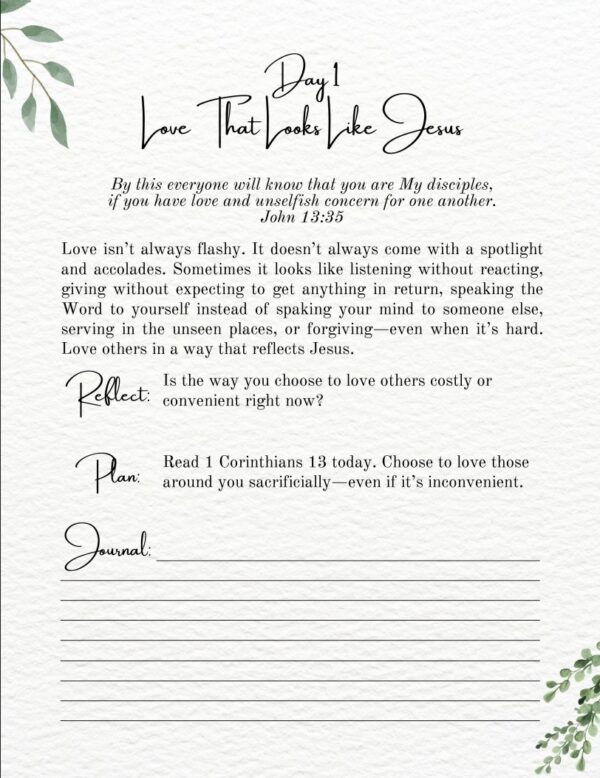 Day 1
Love That Looks Like Jesus
By this everyone will know that you are My disciples,
if you have love and unselfish concern for one another.
John 13:35
Love isn't always flashy. It doesn't always come with a spotlight
and accolades. Sometimes it looks like listening without reacting,
giving without expecting to get anything in return, speaking the
Word to yourself instead of spaking your mind to someone else,
serving in the unseen places, or forgiving—even when it's hard.
Love others in a way that reflects Jesus.
Reflect: Is the way you choose to love others costly or
convenient right now?
Plan: Read 1 Corinthians 13 today. Choose to love those
around you sacrificially—even if it's inconvenient.
Journal: